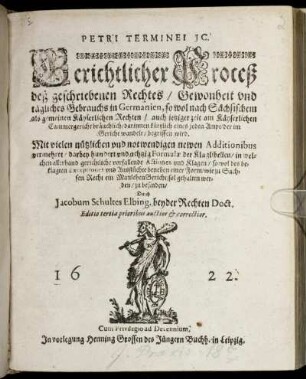 PETRI TERMINEI JC.
Gerichtlicher Proceß
deß geschriebenen Rechtes / Gewonheit vnd
tägliches Gebrauchs in Germanien, so wol nach Sächsischem
als gemeinen Käyserlichen Rechten / auch jetziger zeit am Käyserlichen
Cammergericht bräuchlich / darinnen
Gericht wandeln / begriffen wird.
Mit vielen nützlichen vnd notwendigen newen Additionibus
vermehret / darbey hundert vnd achtzig Formulæ der Klaglibellen / in wel-
chen allerhand gerichtliche vorfallende Actiones vnd Klagen / so wol des be-
klagten exceptiones vnd Ausflüchte beneben einer Form / wie zu Sächs-
sen Recht ein Mündlich Gericht sol gehalten wer-
den / zu befinden /
Durch
Jacobum Schultes Elbing. beyder Rechten Doct.
Editio tertia prioribus auctior & correctior.
1622.
Cum Privilegio ad Decennium,
In vorlegung Henning Grossen des Jüngern Buchh. in Leipzig.